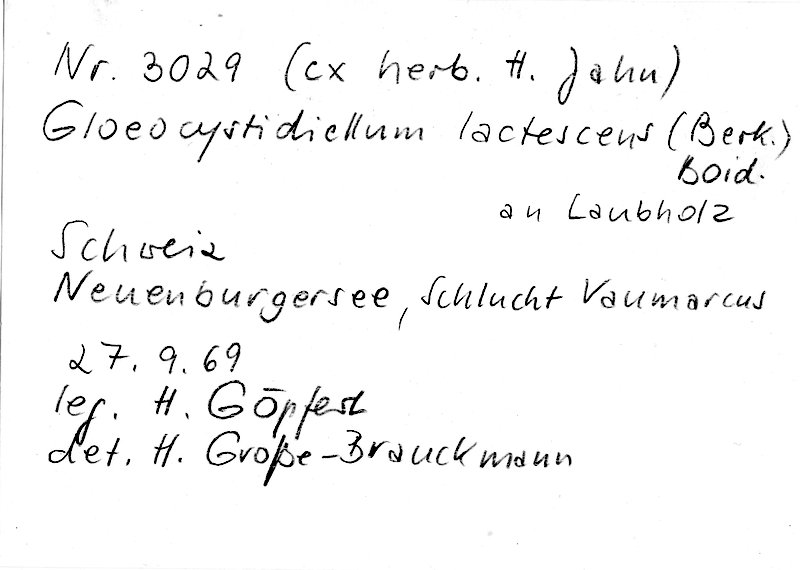 Nr. 3029 (ex herb. H. Jahn)
Gloeocystidiellum lactescens (Berk.)
Boid.
an Laubholz
Schweiz
Neuenburgersee, Schlucht Vaumarcus
27. 9. 69
leg. H. Göpfert
det. H. Große-Brauckmann